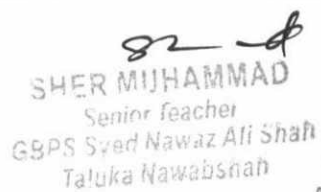 SHER MUHAMMAD
Senior Teacher
GBPS Syed Nawaz Ali Shah
Taluka Nawabshah